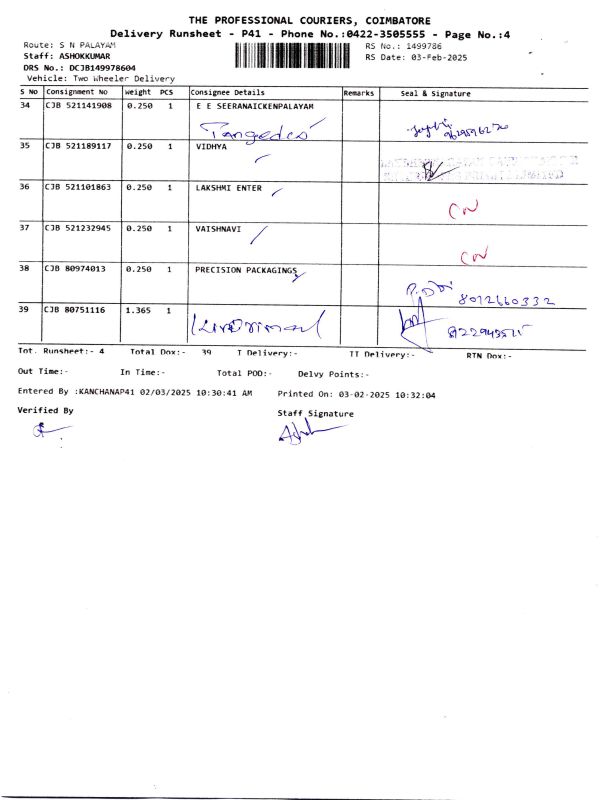 THE PROFESSIONAL COURIERS, COIMBATORE
Delivery Runsheet - P41 - Phone No.:0422-3505555 - Page No.:4
Route: S N PALAYAM RS No.: 1499786
Staff: ASHOKKUMAR RS Date: 03-Feb-2025
DRS No.: DCJB149978604
Vehicle: Two Wheeler Delivery
S No Consignment No Weight PCS Consignee Details Remarks Seal & Signature
34 CJB 521141908 0.250 1 E E SEERANAICKENPALAYAM
Tangedco
35 CJB 521189117 0.250 1 VIDHYA
36 CJB 521101863 0.250 1 LAKSHMI ENTER
CN
37 CJB 521232945 0.250 1 VAISHNAVI
CN
38 CJB 80974013 0.250 1 PRECISION PACKAGINGS
8012660332
39 CJB 80751116 1.365 1
Tot. Runsheet:- 4 Total Dox:- 39 I Delivery:- II Delivery:- RTN Dox:-
Out Time:- In Time:- Total POD:- Delvy Points:-
Entered By :KANCHANAP41 02/03/2025 10:30:41 AM Printed On: 03-02-2025 10:32:04
Verified By Staff Signature